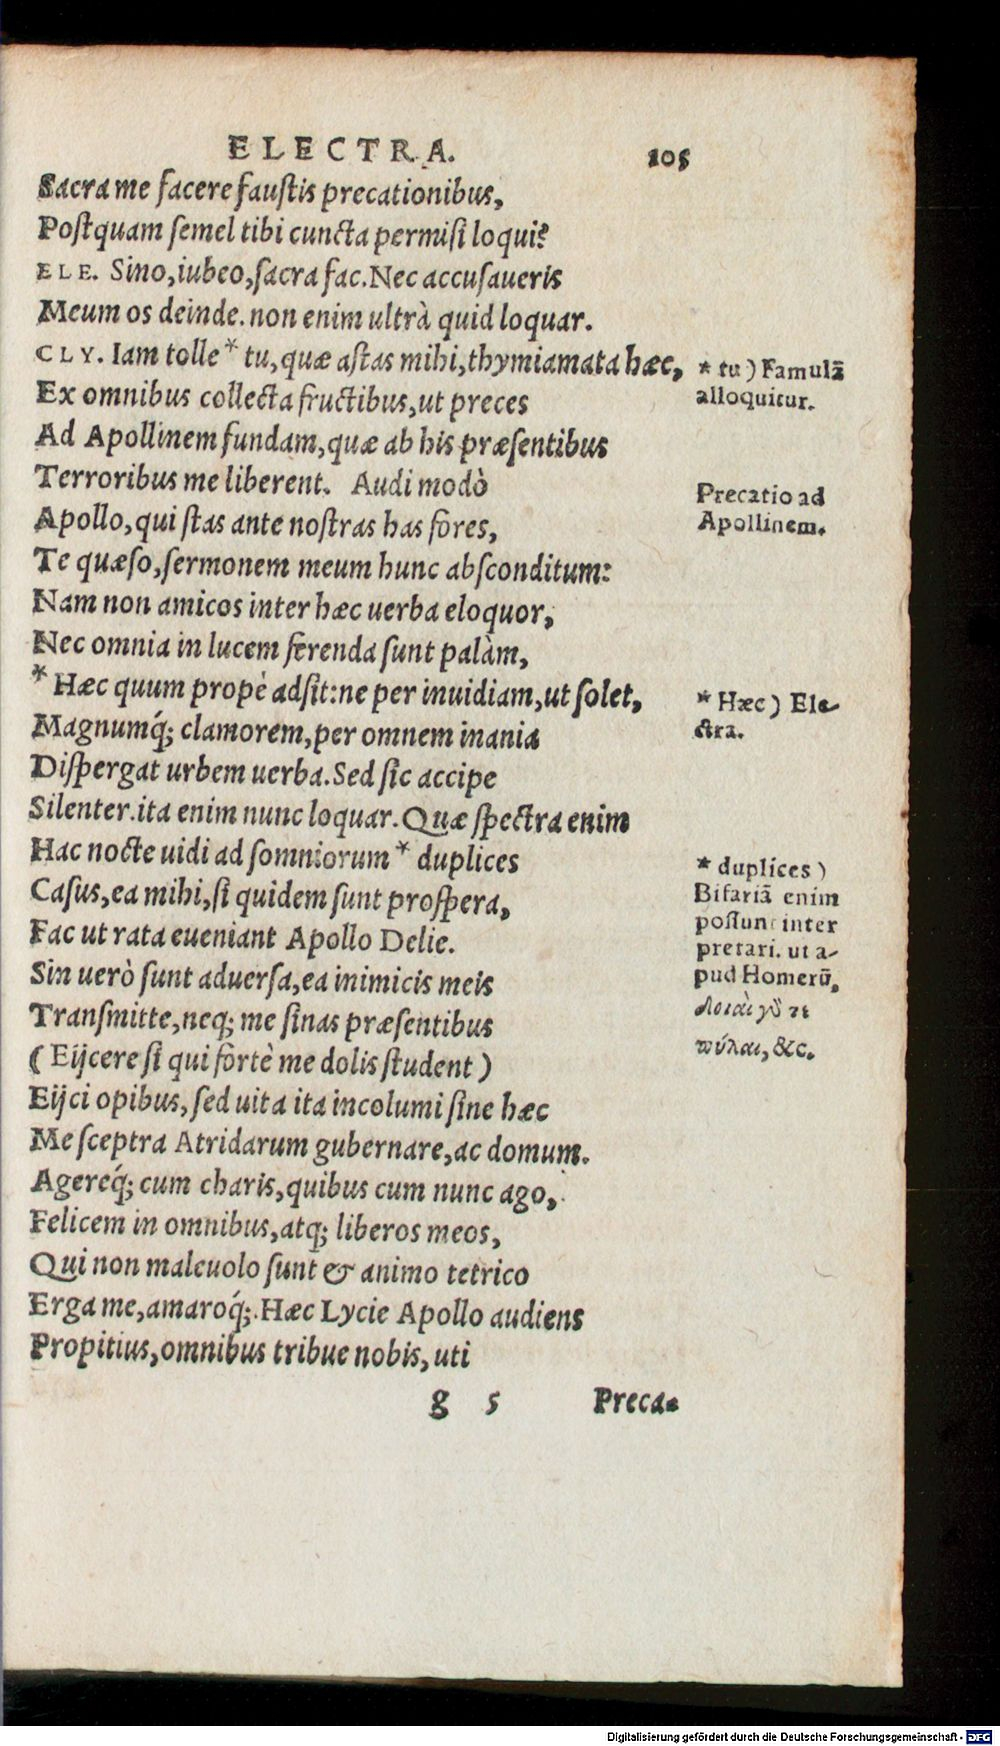 ELECTRA. 105
Sacra me facere faustis precationibus,
Postquam semel tibi cuncta permisi loqui?
ELE. Sino, iubeo, sacra fac. Nec accusaueris
Meum os deinde. non enim ultrà quid loquar.
CLY. Iam tolle * tu, quæ astas mihi, thymiamata hæc,
* tu) Famulā
alloquitur.
Ex omnibus collecta fructibus, ut preces
Ad Apollinem fundam, quæ ab his præsentibus
Terroribus me liberent. Audi modò
Precatio ad
Apollinem.
Apollo, qui stas ante nostras has fores,
Te quæso, sermonem meum hunc absconditum:
Nam non amicos inter hæc uerba eloquor,
Nec omnia in lucem ferenda sunt palàm,
* Hæc quum propè adsit: ne per inuidiam, ut solet,
* Hæc) Ele-
ctra.
Magnumq́; clamorem, per omnem inania
Dispergat urbem uerba. Sed sic accipe
Silenter. ita enim nunc loquar. Quæ spectra enim
Hac nocte uidi ad somniorum * duplices
* duplices)
Bifariā enim
possunt inter
pretari. ut a-
pud Homerū,
δοιαὶ γὸ τι
πύλαι, &c.
Casus, ea mihi, si quidem sunt prospera,
Fac ut rata eueniant Apollo Delie.
Sin uerò sunt aduersa, ea inimicis meis
Transmitte, neq; me sinas præsentibus
(Eijcere si qui fortè me dolis student)
Eijci opibus, sed uita ita incolumi sine hæc
Me sceptra Atridarum gubernare, ac domum.
Agereq́; cum charis, quibus cum nunc ago,
Felicem in omnibus, atq; liberos meos,
Qui non maleuolo sunt & animo tetrico
Erga me, amaroq́;. Hæc Lycie Apollo audiens
Propitius, omnibus tribue nobis, uti
g 5 Preca-
Digitalisierung gefördert durch die Deutsche Forschungsgemeinschaft - DFG